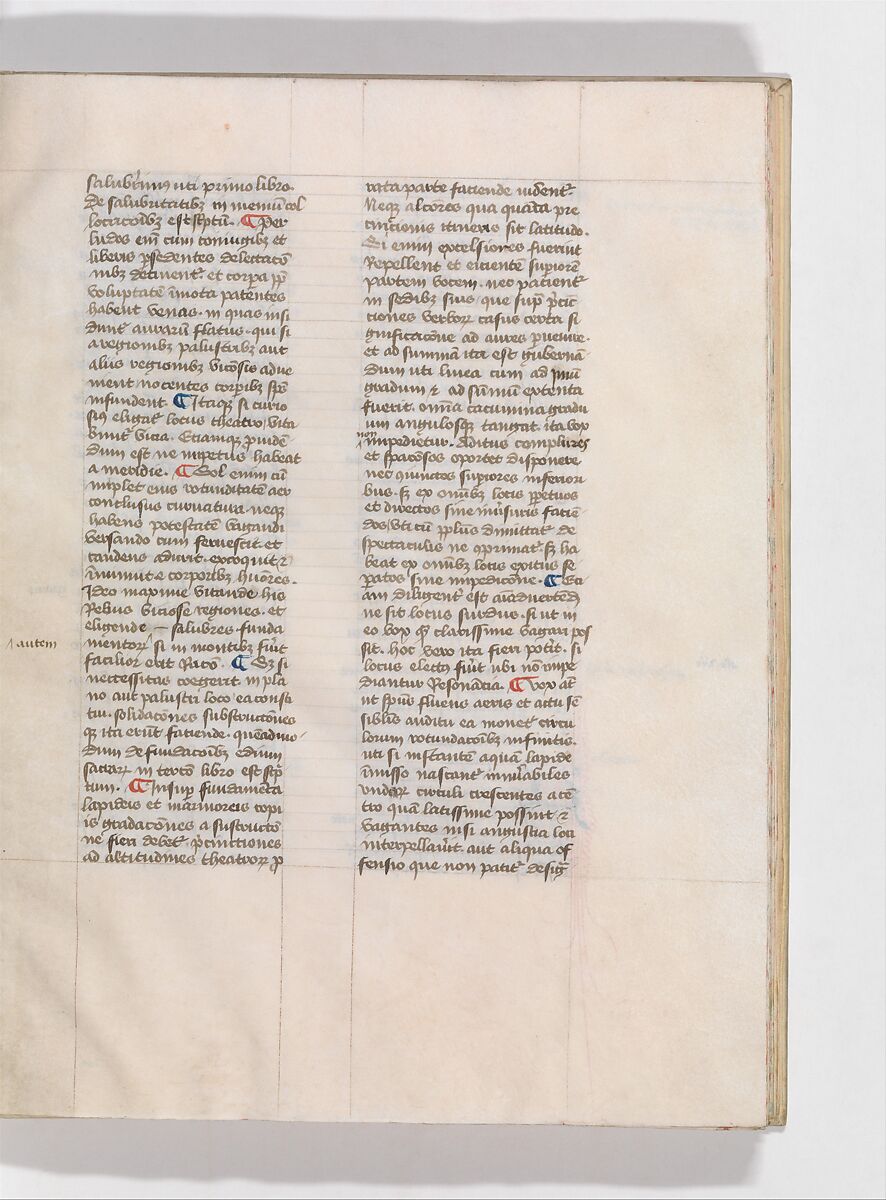 salubr̄imꝰ uti primo libro.
De salubritatibꝫ in meniū col
locacōibꝫ est sc̄ptū. ¶ Per
ludos em̄ cum coniugibꝫ et
liberis p̄sedentes delectacō
nibꝫ detinent᷑. et corpa pp̄
voluptatē īmota patentes
habent venas. in quas insi
dunt᷑ aurarū flatus. qui si
a regionibꝫ palustribꝫ aut
aliis regionibꝫ viciosis adue
nient. nocentes corpibꝫ sps̄
infundent. ¶ Itaqꝫ si curio
siꝰ eligat᷑ locus theatro, vita
bunt᷑ vicia. Etiamqꝫ puidē
dum est ne impetus habeat
a meridie. ¶ Sol enim cū
implet eius rotunditatē aer
conclusus curuatura. neqꝫ
habens potestatē vagandi
versando cum feruescit. et
candens adurit. excoquit ⁊
īminuit e corporibꝫ huōres.
Ideo maxime vitande his
Rebus viciose regiones. et
eligende — salubres. funda
autem
mentorꝝ si in montibꝫ fu̇it
facilior erit Racō. ¶ Sꝫ si
necessitas coegerit in pla
no aut palustri loco ea consti
tui. solidacōnes substructōnes
qꝫ ita erūt faciende. queādmo-
dum de fundacōibꝫ edium
sacrarꝝ in tercō libro est sc̄p
tum. ¶ Insuꝑ fundamēta
lapideis et marmoreis copi
is gradacōnes a sustructō
ne fieri debēt᷑. p̄cinctiones
ad altitudines theatrorꝝ ꝓ
rata parte faciende uident᷑.
Neqꝫ alcōres qua quāta pre
cinctionis itineris sit latitudo.
Si enim excelsiores fuerint
Repellent et eicientē suꝑiorē
partem vocem. nec pacient᷑
in sedibꝫ suis. que suꝑ p̄cinc
tiones verborꝝ casus certa si
gnificacōne ad aures ꝑuenire.
et ad summā ita est gubernā
dum uti linea cum ad imū
gradum ⁊ ad sūmū extenta
fuerit. omīa cacumina gradu
um angulosqꝫ tangat. ita vox
non
impedietur. Aditus complures
et spaciosos oportet disponere
nec ꝯiunctos suꝑiores inferiori
bus. sꝫ ex omībꝫ locis ꝑpetuos
et directos sine inūsuris faciē
dos, vti cū pp̄lus dimittat᷑ de
spectaculis ne ꝯprimat᷑. sꝫ ha
beat ex omībꝫ locis exitus se
ꝑatos sine impedicōne. ¶ Eti
am diligent᷑ est aīaduertēdū
ne sit locus surdus. si ut in
eo vox qͣ clarissime vagari pos
sit. hoc vero ita fieri potit. si
locus electꝰ fu̇it ubi nō impe
diantur Resonācia. ¶ Vox aūt
ut spūs fluens aeris et actu sē
sibilis auditu ea monet᷑ circu
lorum rotundacōibꝫ infinitis.
uti si instantē aquā lapide
īmisso nascant᷑ innūabiles
undarꝝ circuli crescentes a cē
tro quā latissime possint ⁊
vagantes nisi angustia loci
interpellau̇it. aut aliqua of
fensio que non patit᷑ desigͣ